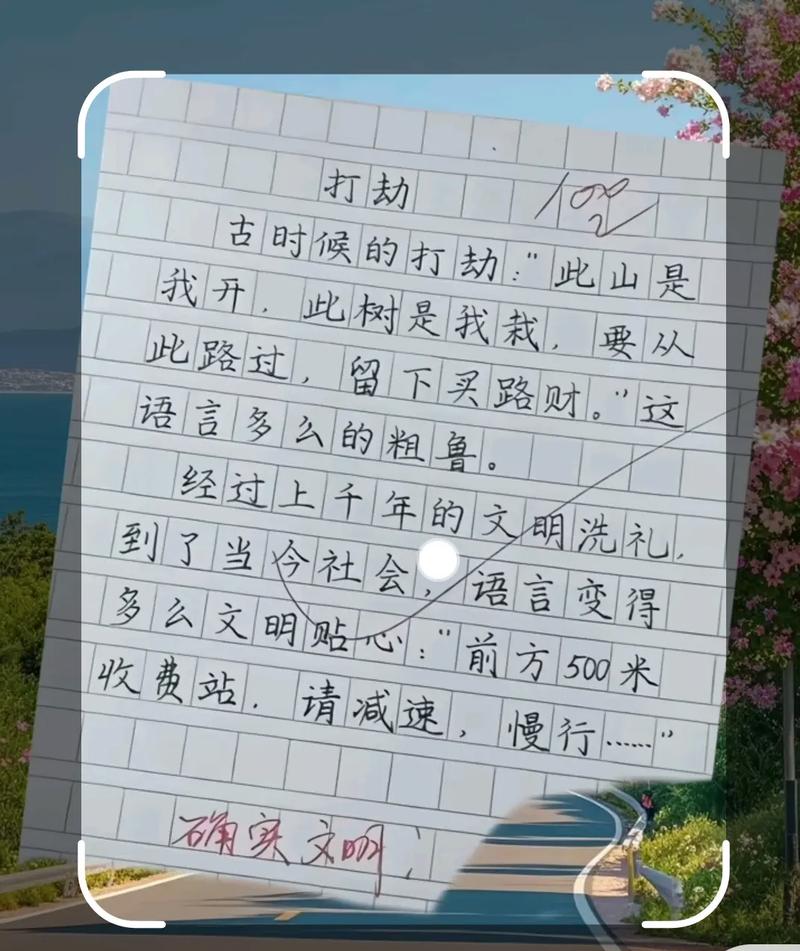 打劫
100
古时候的打劫："此山是
我开，此树是我栽，要从
此路过，留下买路财。"这
语言多么的粗鲁。
经过上千年的文明洗礼，
到了当今社会，语言变得
多么文明贴心："前方500米
收费站，请减速，慢行……"
确实文明！